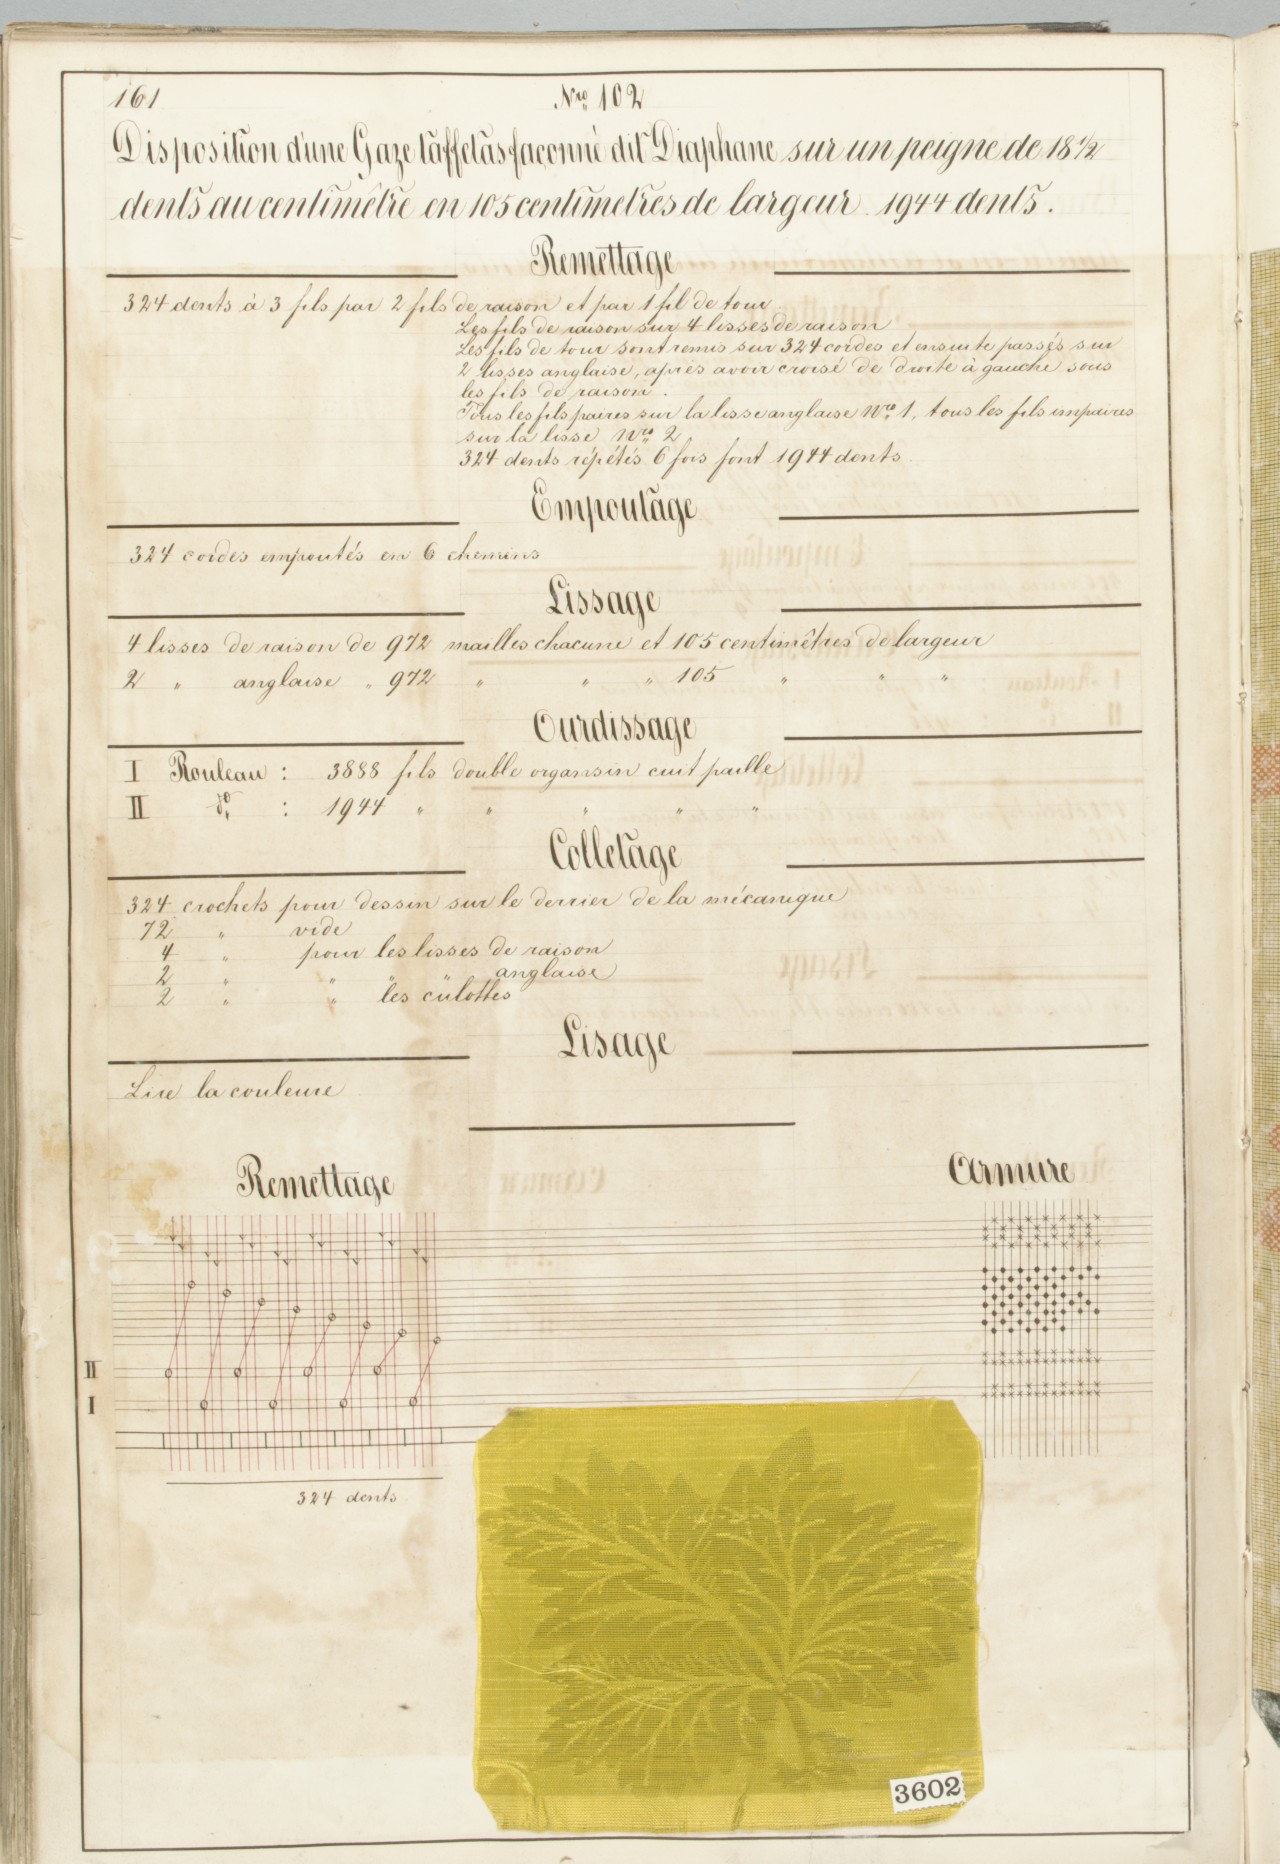 161
Nro 102
Disposition d'une Gaze taffetas façonné dit Diaphane sur un peigne de 18 1/2
dents au centimêtre en 105 centimetres de largeur. 1944 dents.
Remettage
324 dents à 3 fils par 2 fils de raison et par 1 fil de tour
Les fils de raison sur 4 lisses de raison
Les fils de tour sont remis sur 324 cordes et ensuite passés sur
2 lisses anglaise, après avoir croisé de droite à gauche sous
les fils de raison.
Tous les fils paires sur la lisse anglaise Nro 1, tous les fils impaires
sur la lisse Nro 2
324 dents répétés 6 fois font 1944 dents.
Empoutage
324 cordes empoutés en 6 chemins
Lissage
4 lisses de raison de 972 mailles chacune et 105 centimêtres de largeur
2 " anglaise " 972 " " " 105 " " "
Ourdissage
I Rouleau : 3888 fils double organsin cuit paille
II do : 1944 " " " " "
Colletage
324 crochets pour dessin sur le derrier de la mécanique
72 " vide
4 " pour les lisses de raison
2 " " " " anglaise
2 " " les culottes
Lisage
Lire la couleure
Remettage
Armure
II
I
324 dents
3602